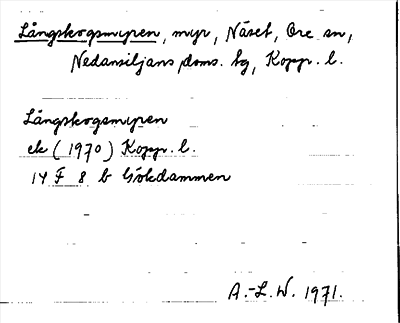 Långskogsmyren, myr, Näset, Ore sn,
Nedansiljans doms. tg, Kopp. l.
Långskogsmyren
ek (1970) Kopp. l.
14 F 8 b Gökdammen
A.-L. W. 1971.